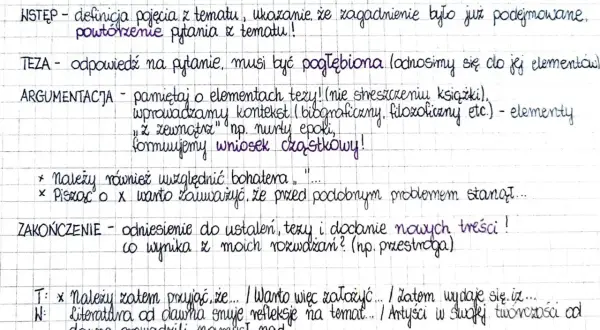 WSTĘP - definicja pojęcia z tematu, ukazanie, że zagadnienie było już podejmowane,
powtórzenie pytania z tematu!
TEZA - odpowiedź na pytanie, musi być pogłębiona (odnosimy się do jej elementów)
ARGUMENTACJA - pamiętaj o elementach tezy! (nie streszczeniu książki),
wprowadzamy kontekst (biograficzny, filozoficzny etc.) - elementy
"z zewnątrz" np. nurty epoki,
formułujemy wniosek cząstkowy!
* Należy również uwzględnić bohatera, "...
* Pisząc o x warto zauważyć, że przed podobnym problemem stanął...
ZAKOŃCZENIE - odniesienie do ustaleń, tezy i dodanie nowych treści!
co wynika z moich rozważań? (np. przestroga)
T: * Należy zatem przyjąć, że... / Warto więc założyć... / Zatem wydaje się, iż...
W: Literatura od dawna snuje refleksje na temat... / Artyści w swojej twórczości od